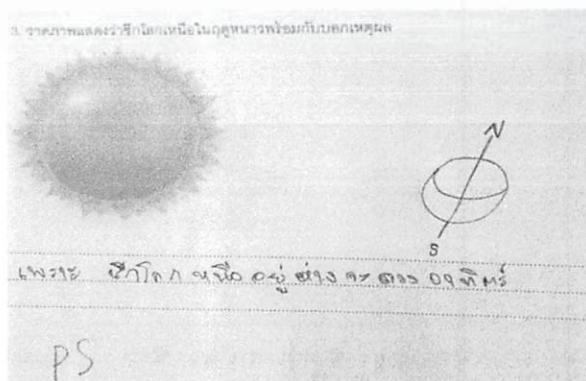 3. วาดภาพแสดงว่าซีกโลกเหนือในฤดูหนาวพร้อมกับบอกเหตุผล
N
S
เพราะ ซีกโลกเหนือ อยู่ ห่าง จะ ดวง อาทิตร์
PS